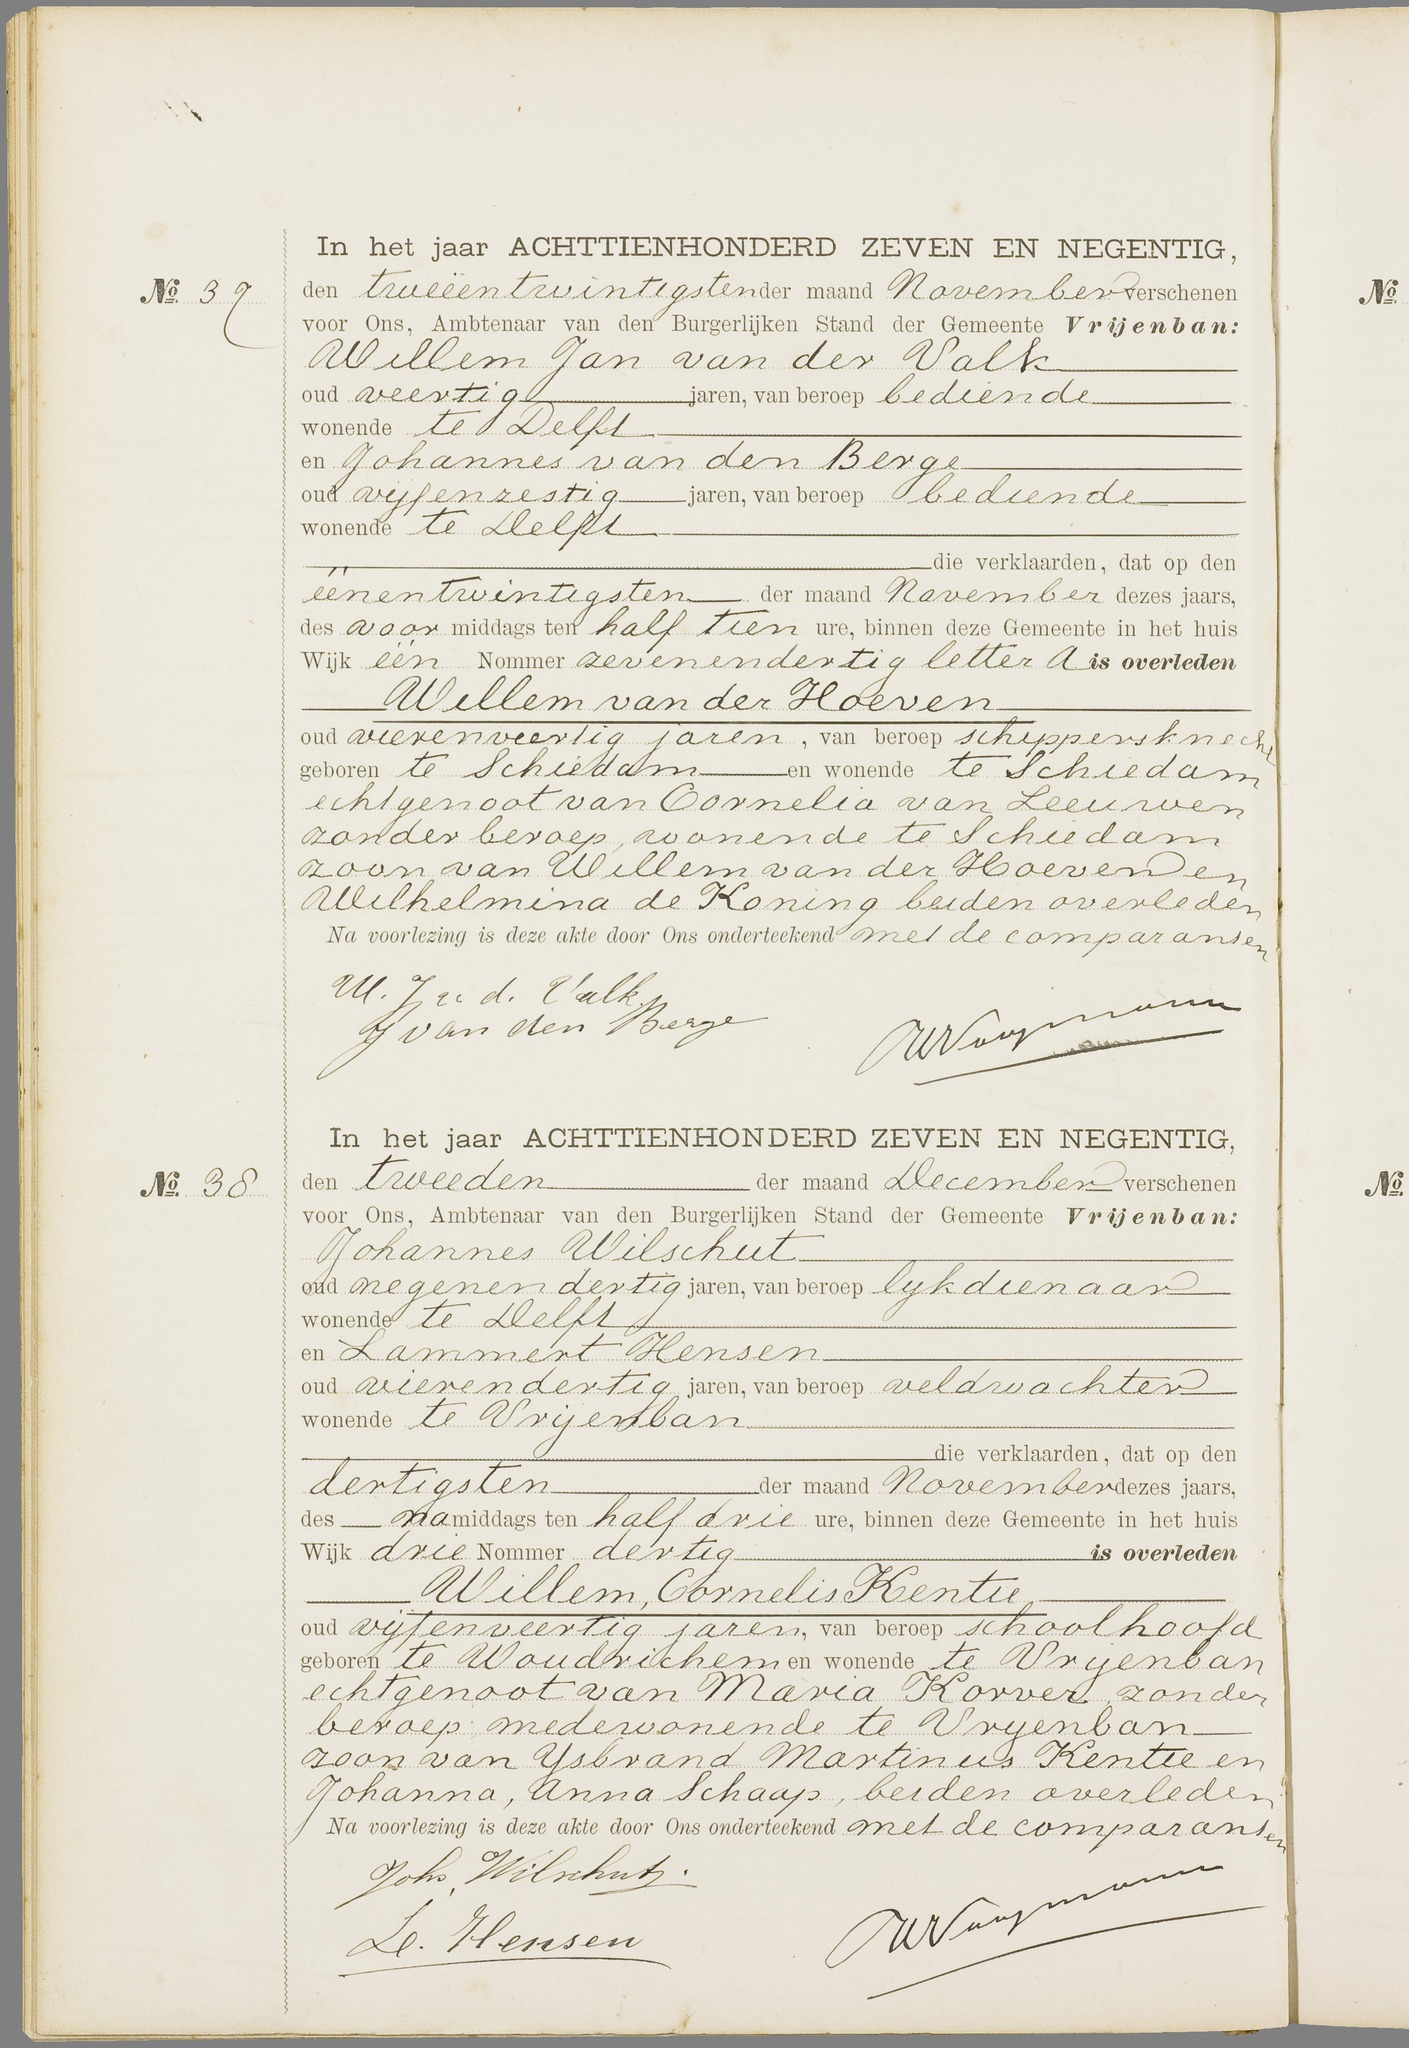 In het jaar ACHTTIENHONDERD ZEVEN EN NEGENTIG,
No. 37 den tweeëntwintigsten der maand November verschenen
voor Ons, Ambtenaar van den Burgerlijken Stand der Gemeente Vrijenban:
Willem Jan van der Valk
oud veertig jaren, van beroep bediende
wonende te Delft
en Johannes van den Berge
oud vijfenzestig jaren, van beroep bediende
wonende te Delft
die verklaarden, dat op den
éénentwintigsten der maand November dezes jaars,
des voor middags ten half tien ure, binnen deze Gemeente in het huis
Wijk één Nommer zevenendertig letter A is overleden
Willem van der Hoeven
oud vierenveertig jaren, van beroep schippersknecht
geboren te Schiedam en wonende te Schiedam
echtgenoot van Cornelia van Leeuwen
zonder beroep, wonende te Schiedam
zoon van Willem van der Hoeven en
Wilhelmina de Koning beiden overleden
Na voorlezing is deze akte door Ons onderteekend met de comparanten
W. J. v. d. Valk.
J van den Berge
No. 
In het jaar ACHTTIENHONDERD ZEVEN EN NEGENTIG,
No. 38 den tweeden der maand December verschenen
voor Ons, Ambtenaar van den Burgerlijken Stand der Gemeente Vrijenban:
Johannes Wilschut
oud negenendertig jaren, van beroep lykdienaar
wonende te Delft
en Lammert Hensen
oud vierendertig jaren, van beroep veldwachter
wonende te Vrijenban
die verklaarden, dat op den
dertigsten der maand November dezes jaars,
des na middags ten half drie ure, binnen deze Gemeente in het huis
Wijk drie Nommer dertig is overleden
Willem, Cornelis Kentie
oud vijfenveertig jaren, van beroep schoolhoofd
geboren te Woudrichem en wonende te Vryenban
echtgenoot van Maria Korver, zonder
beroep, medewonende te Vryenban
zoon van Ysbrand Martinus Kentie en
Johanna, Anna Schaap, beiden overleden
Na voorlezing is deze akte door Ons onderteekend met de comparanten
Johs. Wilschut.
L. Hensen
No.